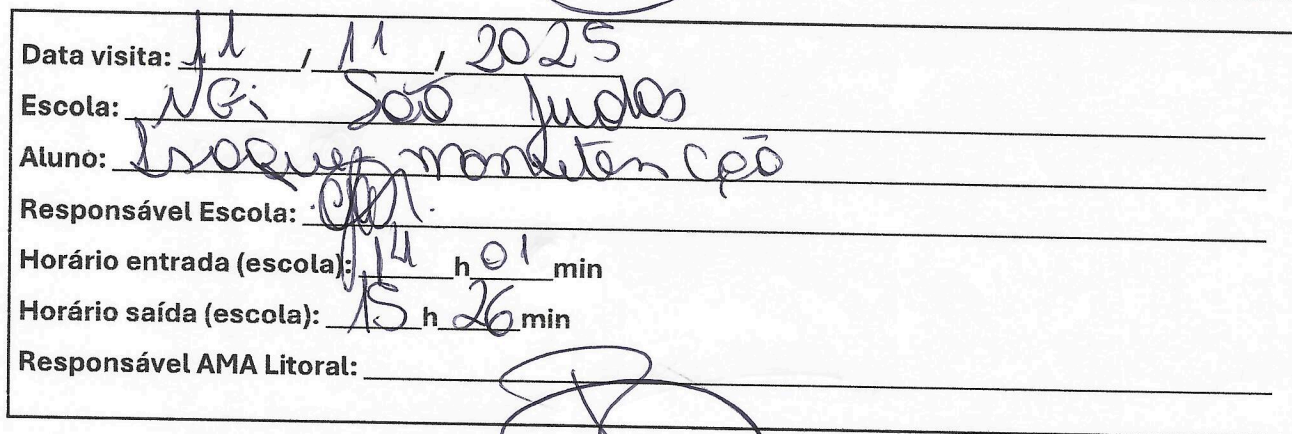 Data visita: 11 / 11 / 2025
Escola: NEi São Judas
Aluno: Isaque manutenção
Responsável Escola:
Horário entrada (escola): 14 h 01 min
Horário saída (escola): 15 h 26 min
Responsável AMA Litoral: